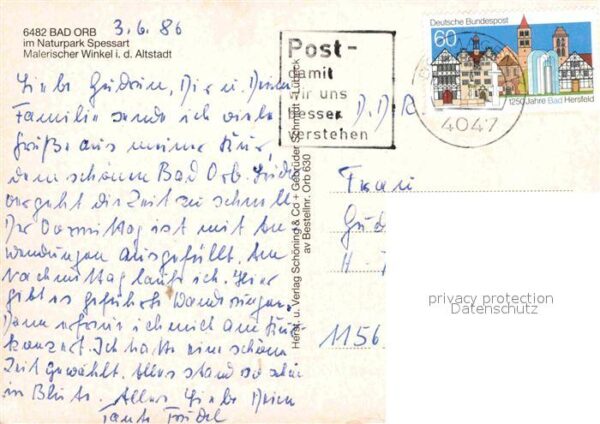 6482 BAD ORB
im Naturpark Spessart
Malerischer Winkel i. d. Altstadt
3.6.86
Liebe Gudrun, Dir u. Deiner
Familie sende ich viele
Grüße aus meiner Kur,
dem schönen Bad Orb. Leider
vergeht die Zeit zu schnell.
Der Vormittag ist mit An
wendungen ausgefüllt. Am
Nachmittag laufe ich. Hier
gibt es geführte Wanderungen.
Dann erfreue ich mich am Kur
konzert. Ich hatte eine schöne
Zeit gewählt. Alles stand so schön
in Blüte. Alles Liebe Deine
Tante Friedel
Herst. u. Verlag Schöning & Co + Gebrüder Schmidt - Lübeck
av Bestellnr. Orb 630
Post-
damit
wir uns
besser
verstehen
4047
Deutsche Bundespost
60
1250 Jahre Bad Hersfeld
D.D.R.
Frau
Gud
H-
1156
privacy protection
Datenschutz